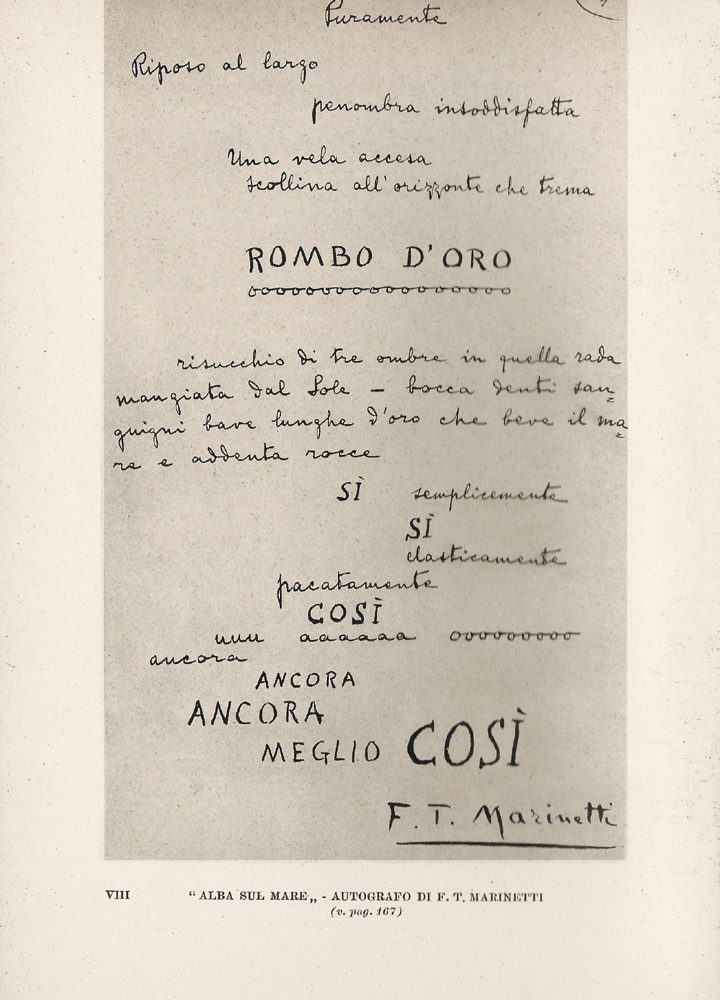 Puramente
Riposo al largo
penombra insoddisfatta
Una vela accesa
scollina all'orizzonte che trema
ROMBO D'ORO
ooooooooooooooooo
risucchio di tre ombre in quella rada
mangiata dal Sole – bocca denti san=
guigni bave lunghe d'oro che beve il ma=
re e addenta rocce
SÌ semplicemente
SÌ
elasticamente
pacatamente
COSÌ
uuu aaaaaa ooooooooo
ancora
ANCORA
ANCORA
MEGLIO COSÌ
F. T. Marinetti
VIII “ALBA SUL MARE„ - AUTOGRAFO DI F. T. MARINETTI
(v. pag. 167)